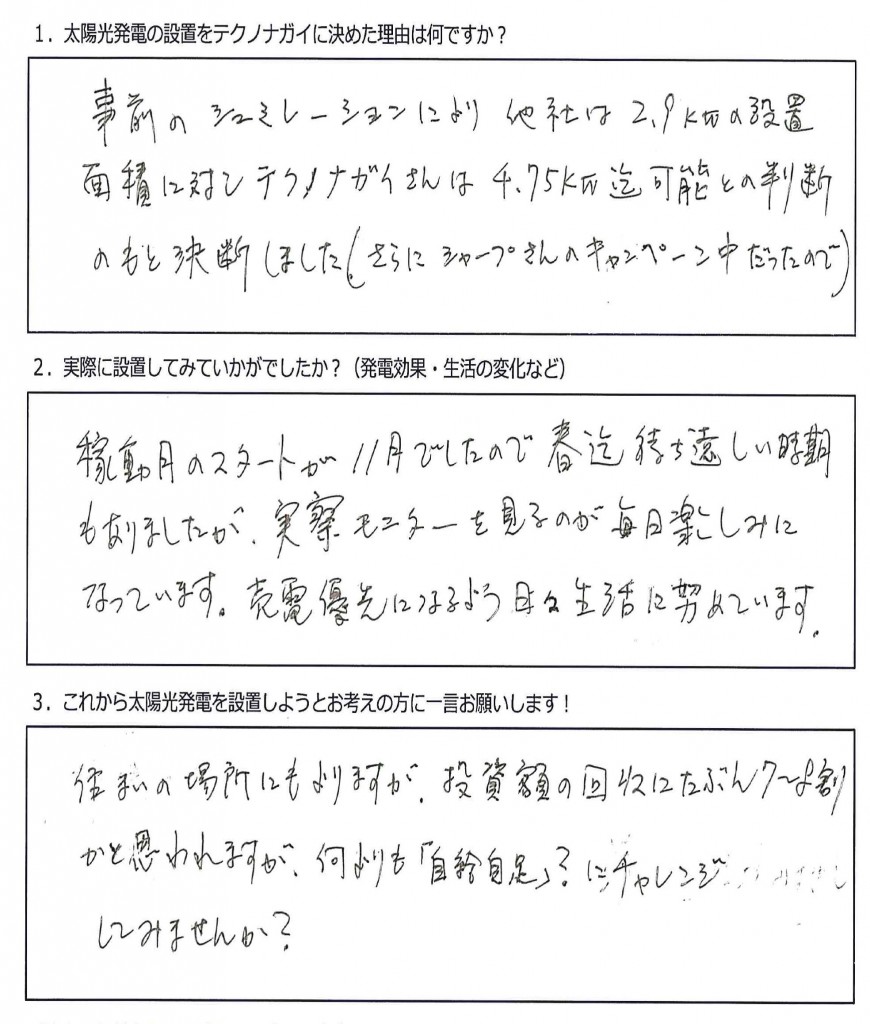 1．太陽光発電の設置をテクノナガイに決めた理由は何ですか？
事前のシュミレーションにより他社は2.9KWの設置
面積に対しテクノナガイさんは4.75KW迄可能との判断
のもと決断しました(さらにシャープさんのキャンペーン中だったので)
2．実際に設置してみていかがでしたか？（発電効果・生活の変化など）
稼動月のスタートが11月でしたので春迄待ち遠しい時期
もありましたが、実際モニターを見るのが毎日楽しみに
なっています。売電優先になるよう日々生活に努めています。
3．これから太陽光発電を設置しようとお考えの方に一言お願いします！
住まいの場所にもよりますが、投資額の回収にたぶん7〜8割
かと思われますが、何よりも「自給自足」？にチャレンジ
してみませんか？